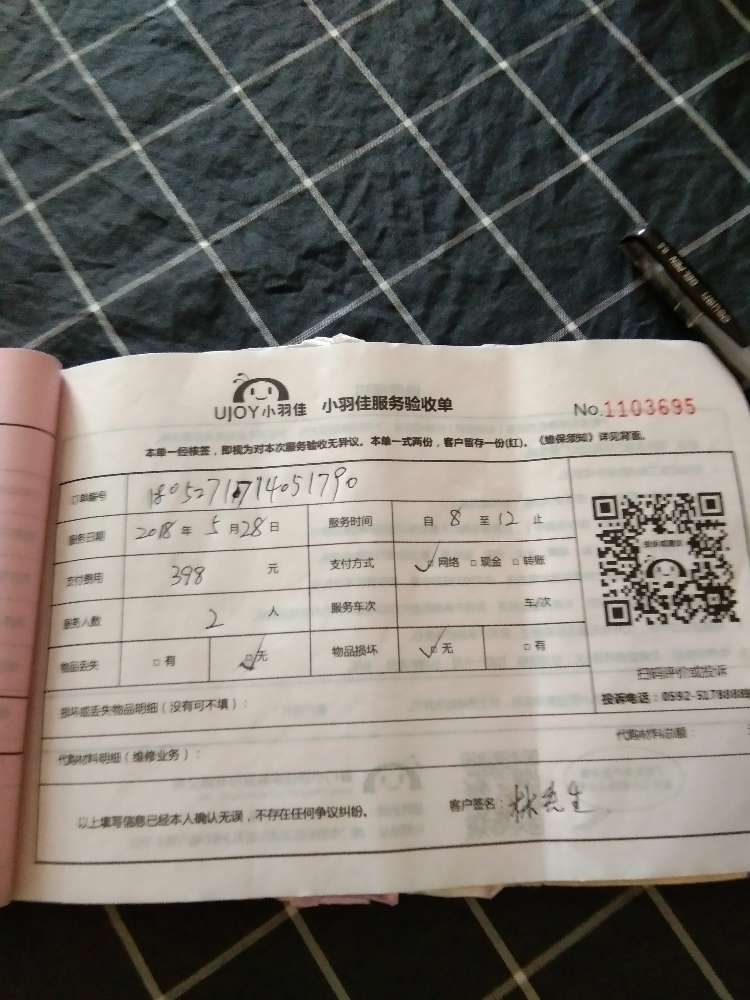 UJOY小羽佳 小羽佳服务验收单 No.1103695
本单一经核签，即视为对本次服务验收无异议。本单一式两份，客户留存一份(红)。《维保须知》详见背面。
订单编号 1805271714051790
服务日期 2018 年 5 月 28 日 服务时间 自 8 至 12 止
支付费用 398 元 支付方式 ☑网络 □现金 □转账
服务人数 2 人 服务车次 车/次
物品丢失 □有 ☑无 物品损坏 ☑无 □有
扫码评价或投诉
损坏或丢失物品明细（没有可不填）： 投诉电话：0592-5178888
代购材料明细（维修业务）： 代购材料总额：
以上填写信息已经本人确认无误，不存在任何争议纠纷。 客户签名：林先生